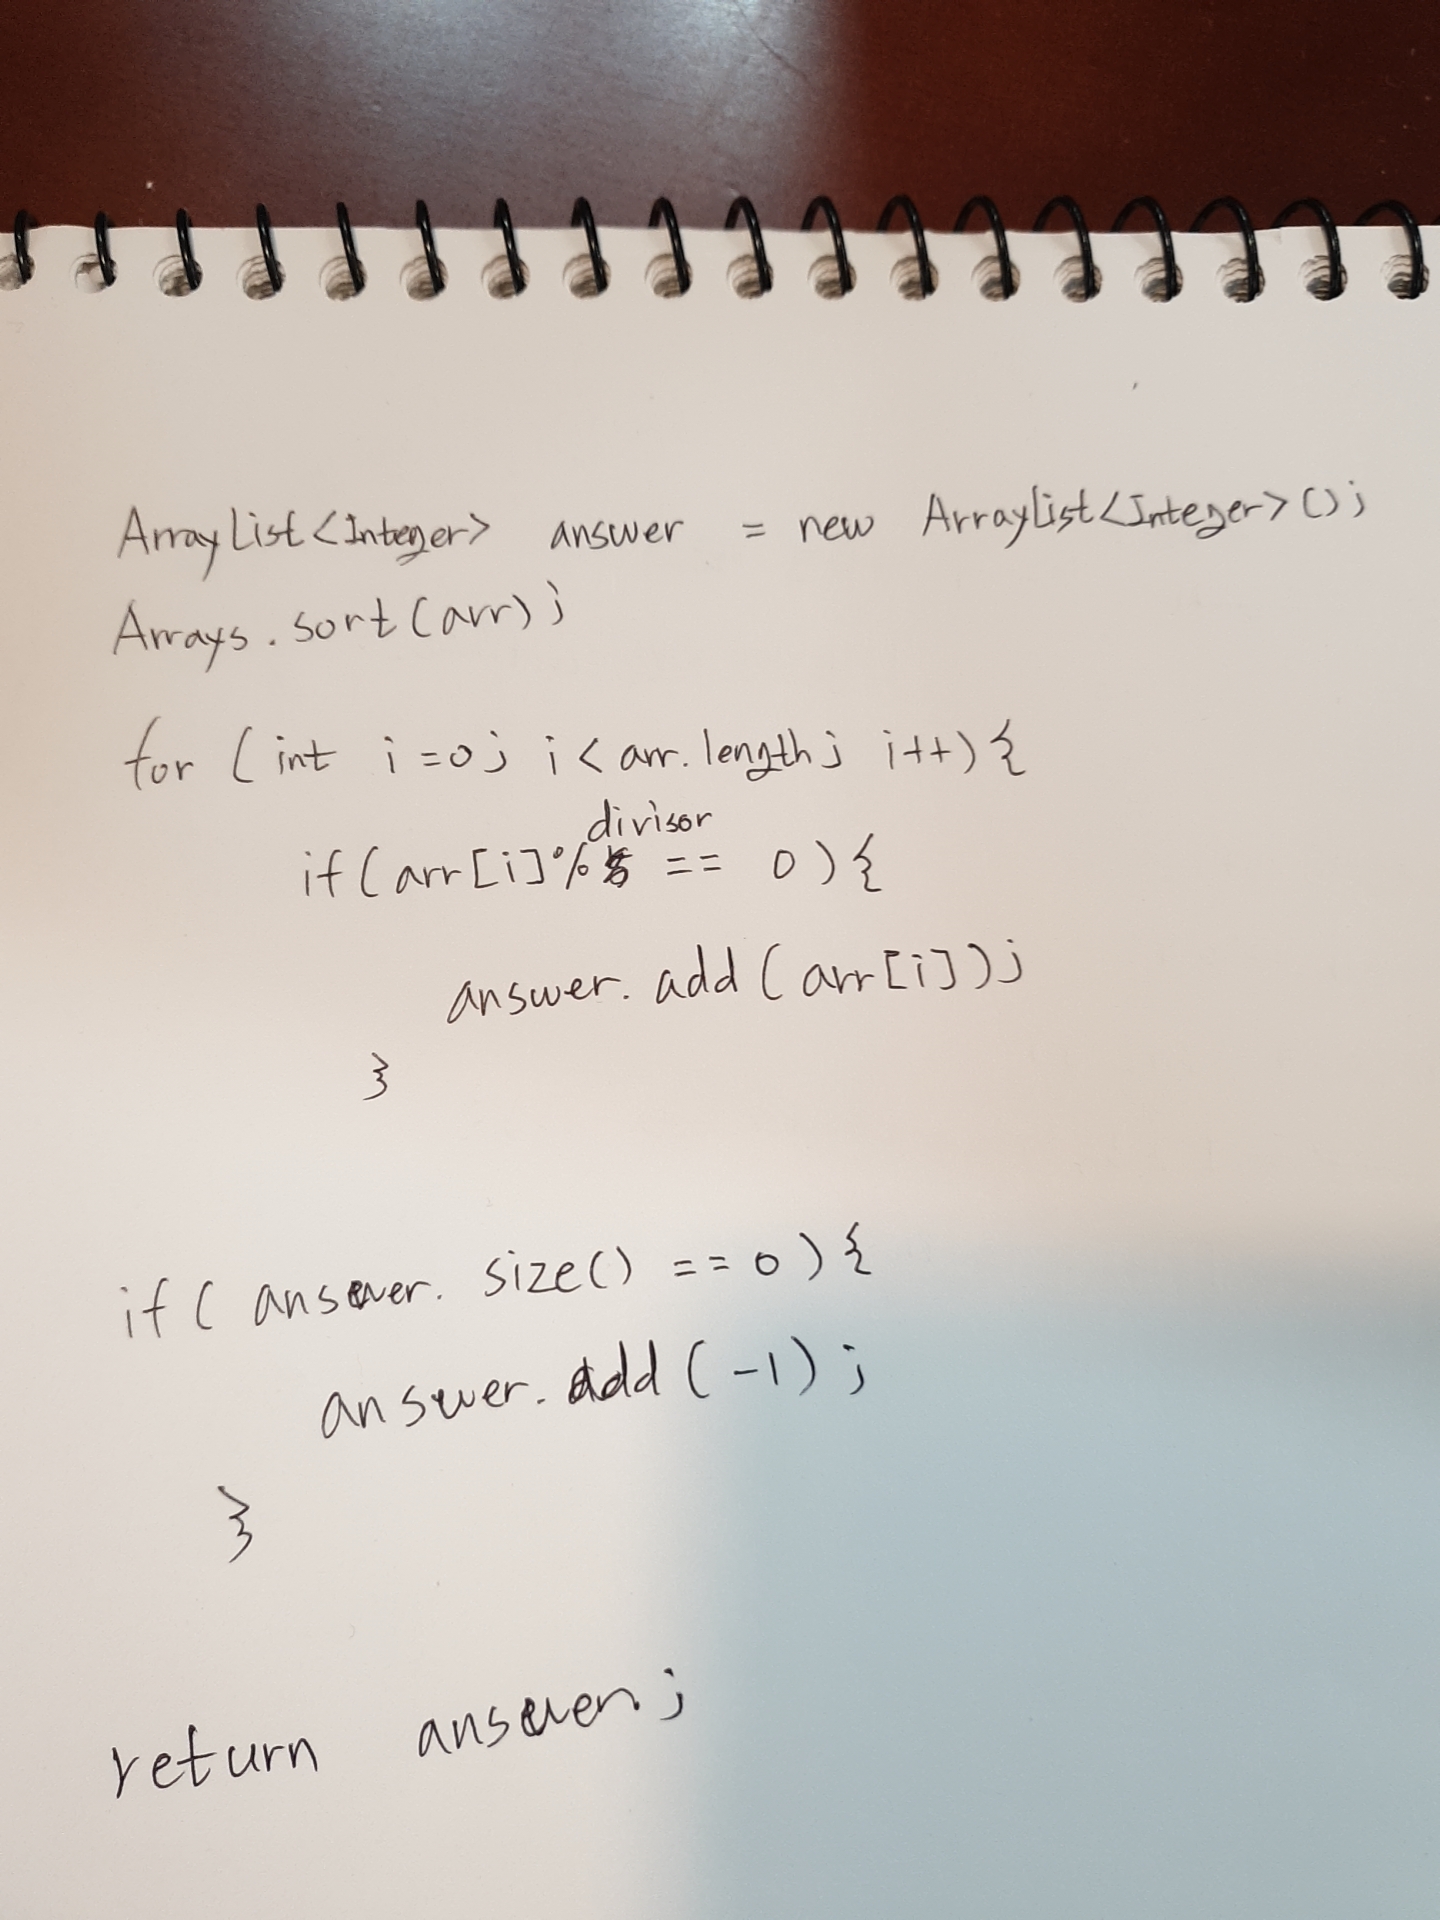 ArrayList<Integer> answer = new ArrayList<Integer>();
Arrays.sort(arr);
for (int i=0; i< arr.length; i++){
divisor
if(arr[i]% == 0){
answer.add(arr[i]);
}
if( answer.size() ==0){
answer.add(-1);
}
return answer;